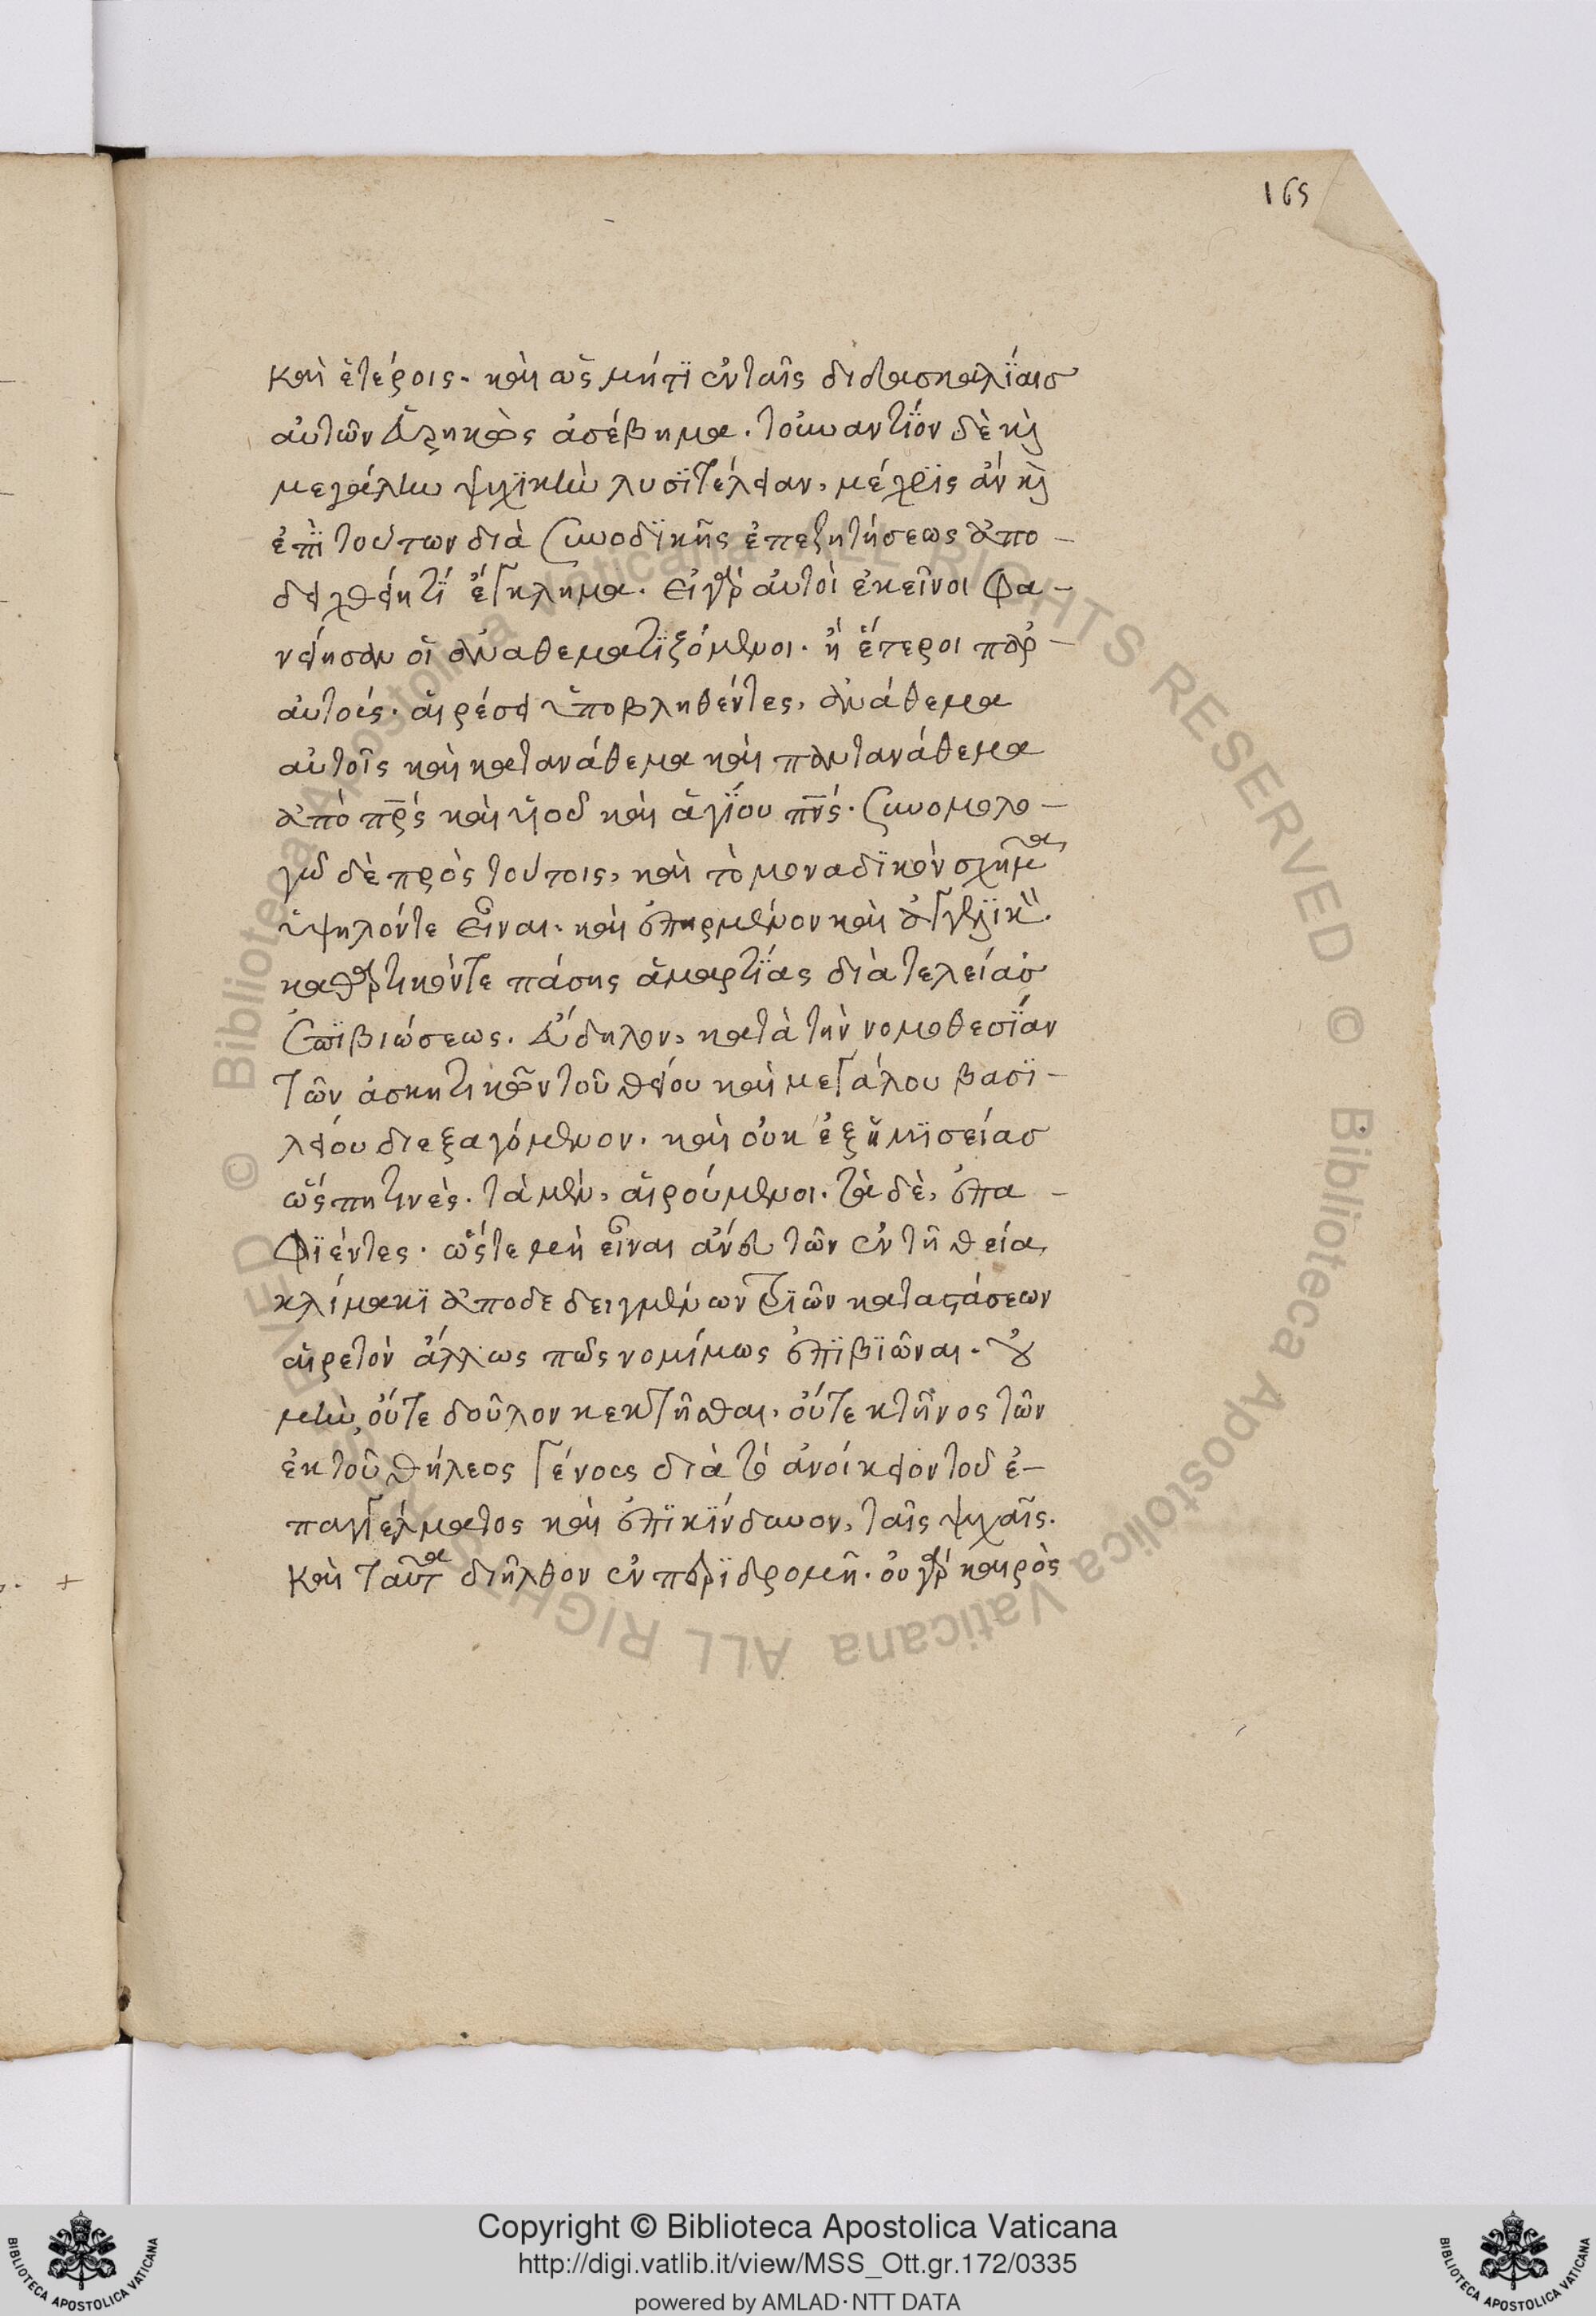 165
καὶ ἑτέροις. καὶ ὡς μήτϊ ἐν ταῖς διδασκαλΐαισ
αὐτῶν εὑρηκὼς ἀσέβημα. τοὐναντΐον δὲ κỳ
μεγάλην ψυχϊκὴν λυσϊτέλειαν, μέχρϊς ἂν κỳ
ἐπῒ τούτων διὰ συνοδϊκῆς ἐπεζητήσεως ἀπο-
δειχθείη τΐ ἔγκλημα. εἰ γὰρ αὐτοὶ ἐκεῖνοι φα-
νείησαν οἱ ἀναθεματϊζόμενοι. ἢ ἕτεροι παρ'-
αὐτοὺς. αἱρέσει ὑποβληθέντες, ἀνάθεμα
αὐτοῖς καὶ κατανάθεμα καὶ παντανάθεμα
ἀπὸ πρς καὶ υἱοῦ καὶ ἁγΐου πνς. συνομολο-
γῶ δὲ πρὸς τούτοις, καὶ τὸ μοναδϊκὸν σχῆμα,
ὑψηλόν τε εἶναι. καὶ ἐπηρμένον καὶ ἀγγελϊκὸν.
καθαρτικόν τε πάσης ἁμαρτΐας διὰ τελείασ
συμβιώσεως. εὔδηλον, κατὰ τὴν νομοθεσΐαν
τῶν ἀσκητικῶν τοῦ θείου καὶ μεγάλου βασϊ-
λείου διεξαγόμενον. καὶ οὐκ ἐξ ἡμϊσείασ
ὥς πῃ τινὲς. τὰ μὲν, αἱρούμενοι. τὰ δὲ, ἐπα-
φϊέντες. ὥς τε μὴ εἶναι ἄνευ τῶν ἐν τῇ θεία,
κλίμακϊ ἀποδεδειγμένων τριῶν καταστάσεων
αἱρετὸν ἄλλως πῶς νομίμως ἐπϊβϊῶναι. οὐ
μὴν οὔτε δοῦλον κεκτῆσθαι. οὔτε κτῆνος τῶν
ἐκ τοῦ θήλεος γένους διὰ τὸ ἀνοίκειον τοῦ ἐ-
παγγέλματος καὶ ἐπϊκΐνδυνον, ταῖς ψυχαῖς.
Καὶ ταῦτα διῆλθον ἐν παρϊδρομῇ. οὐ γὰρ καιρὸς
Copyright © Biblioteca Apostolica Vaticana
http://digi.vatlib.it/view/MSS_Ott.gr.172/0335
powered by AMLAD·NTT DATA